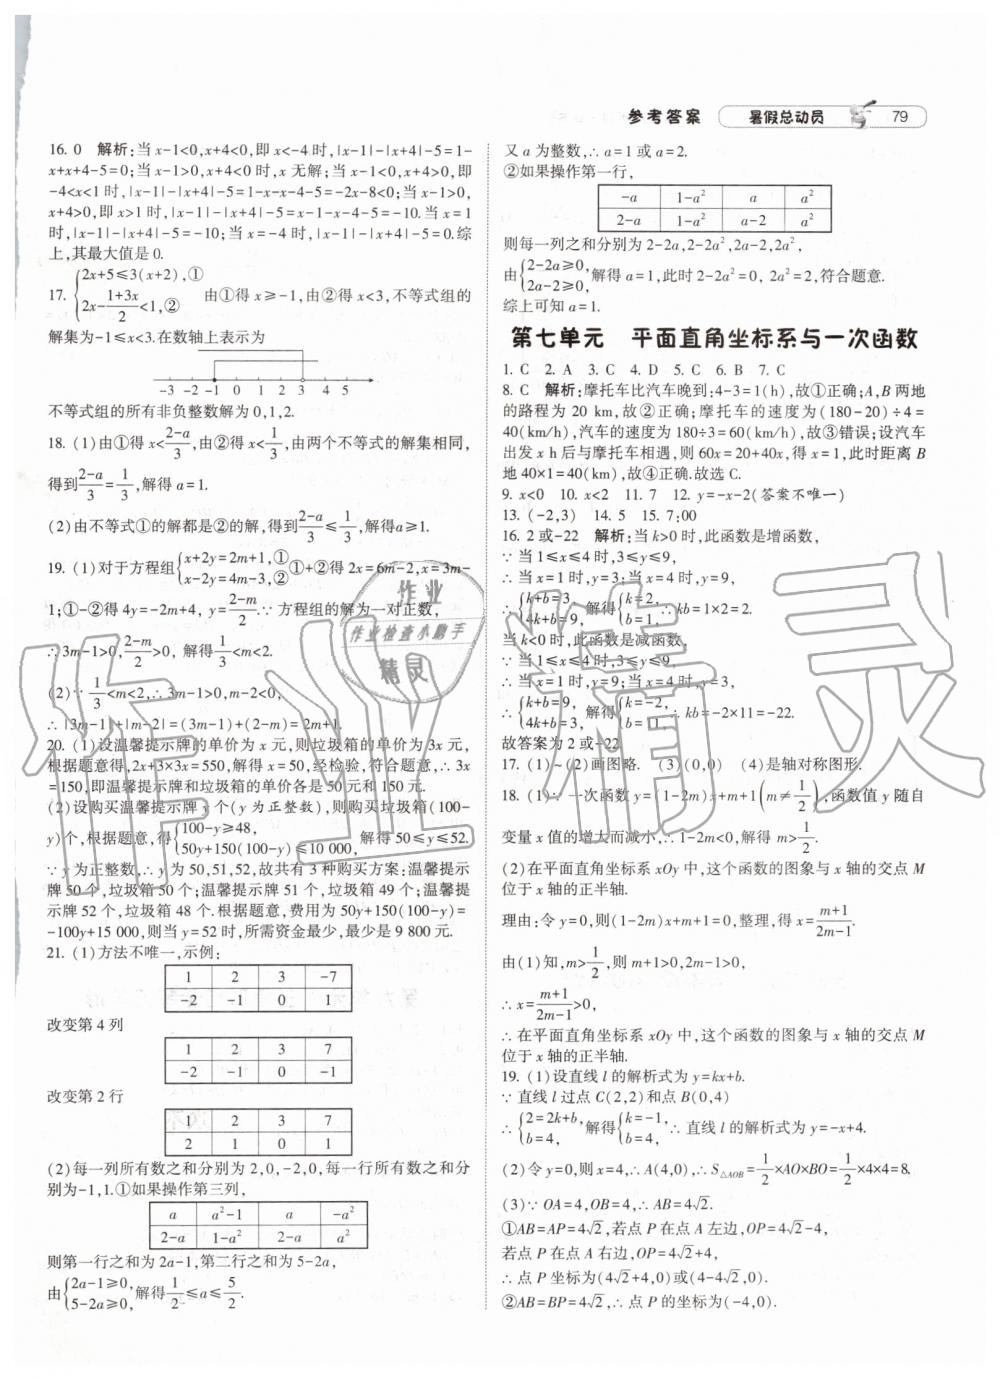 参考答案 暑假总动员 79
16. 0 解析:当x-1<0,x+4<0,即x<-4时,|x-1|-|x+4|-5=1-
x+x+4-5=0;当x-1>0,x+4<0时,x无解;当x-1<0,x+4>0,即
-4<x<1时,|x-1|-|x+4|-5=1-x-x-4-5=-2x-8<0;当x-1>0,
x+4>0,即x>1时,|x-1|-|x+4|-5=x-1-x-4-5=-10.当x=1
时,|x-1|-|x+4|-5=-10;当x=-4时,|x-1|-|x+4|-5=0.综
上,其最大值是0.
17. {2x+5≤3(x+2),① 2x-(1+3x)/2<1,② 由①得x≥-1,由②得x<3,不等式组的
解集为-1≤x<3.在数轴上表示为
-3 -2 -1 0 1 2 3 4 5
不等式组的所有非负整数解为0,1,2.
18. (1)由①得x<(2-a)/3,由②得x<1/3,由两个不等式的解集相同,
得到(2-a)/3=1/3,解得a=1.
(2)由不等式①的解都是②的解,得到(2-a)/3≤1/3,解得a≥1.
19. (1)对于方程组{x+2y=2m+1,① x-2y=4m-3,② ①+②得2x=6m-2,x=3m-
1;①-②得4y=-2m+4, y=(2-m)/2.∵方程组的解为一对正数,
∴3m-1>0,(2-m)/2>0, 解得1/3<m<2.
(2)∵1/3<m<2,∴3m-1>0,m-2<0,
∴|3m-1|+|m-2|=(3m-1)+(2-m)=2m+1.
20. (1)设温馨提示牌的单价为x元,则垃圾箱的单价为3x元,
根据题意得,2x+3×3x=550,解得x=50,经检验,符合题意,∴3x
=150,即温馨提示牌和垃圾箱的单价各是50元和150元.
(2)设购买温馨提示牌y个(y为正整数),则购买垃圾箱(100-
y)个,根据题意,得{100-y≥48, 50y+150(100-y)≤10 000, 解得50≤y≤52.
∵y为正整数,∴y为50,51,52,故共有3种购买方案:温馨提示
牌50个,垃圾箱50个;温馨提示牌51个,垃圾箱49个;温馨提
示牌52个,垃圾箱48个.根据题意,费用为50y+150(100-y)=
-100y+15 000,则当y=52时,所需资金最少,最少是9 800元.
21. (1)方法不唯一,示例:
1 2 3 -7
-2 -1 0 1
改变第4列
1 2 3 7
-2 -1 0 -1
改变第2行
1 2 3 7
2 1 0 1
(2)每一列所有数之和分别为2,0,-2,0,每一行所有数之和分
别为-1,1.①如果操作第三列,
a a²-1 a -a²
2-a 1-a² 2-a a²
则第一行之和为2a-1,第二行之和为5-2a,
由{2a-1≥0, 5-2a≥0, 解得1/2≤a≤5/2.
又a为整数,∴a=1或a=2.
②如果操作第一行,
-a 1-a² a a²
2-a 1-a² a-2 a²
则每一列之和分别为2-2a,2-2a²,2a-2,2a²,
由{2-2a≥0, 2a-2≥0, 解得a=1,此时2-2a²=0, 2a²=2,符合题意.
综上可知a=1.
第七单元 平面直角坐标系与一次函数
1. C 2. A 3. C 4. D 5. C 6. B 7. C
8. C 解析:摩托车比汽车晚到:4-3=1(h),故①正确;A,B两地
的路程为20 km,故②正确;摩托车的速度为(180-20)÷4=
40(km/h),汽车的速度为180÷3=60(km/h),故③错误;设汽车
出发x h后与摩托车相遇,则60x=20+40x,得x=1,此时距离B
地40×1=40(km),故④正确.故选C.
9. x<0 10. x<2 11. 7 12. y=-x-2(答案不唯一)
13. (-2,3) 14. 5 15. 7:00
16. 2或-22 解析:当k>0时,此函数是增函数,
∵当1≤x≤4时,3≤y≤9,
∴当x=1时,y=3;当x=4时,y=9,
∴{k+b=3, 4k+b=9, 解得{k=2, b=1. ∴kb=1×2=2.
当k<0时,此函数是减函数,
∵当1≤x≤4时,3≤y≤9,
∴当x=1时,y=9;当x=4时,y=3,
∴{k+b=9, 4k+b=3, 解得{k=-2, b=11. ∴kb=-2×11=-22.
故答案为2或-22.
17. (1)~(2)画图略. (3)(0,0) (4)是轴对称图形.
18. (1)∵一次函数y=(1-2m)x+m+1(m≠1/2),函数值y随自
变量x值的增大而减小,∴1-2m<0,解得m>1/2.
(2)在平面直角坐标系xOy中,这个函数的图象与x轴的交点M
位于x的正半轴.
理由:令y=0,则(1-2m)x+m+1=0,整理,得x=(m+1)/(2m-1).
由(1)知,m>1/2,则m+1>0,2m-1>0,
∴x=(m+1)/(2m-1)>0,
∴在平面直角坐标系xOy中,这个函数的图象与x轴的交点M
位于x的正半轴.
19. (1)设直线l的解析式为y=kx+b.
∵直线l过点C(2,2)和点B(0,4)
∴{2=2k+b, b=4, 解得{k=-1, b=4, ∴直线l的解析式为y=-x+4.
(2)令y=0,则x=4,∴A(4,0),∴S△AOB=1/2×AO×BO=1/2×4×4=8.
(3)∵OA=4,OB=4,∴AB=4√2.
①AB=AP=4√2,若点P在点A左边,OP=4√2-4,
若点P在点A右边,OP=4√2+4,
∴点P坐标为(4√2+4,0)或(4-4√2,0).
②AB=BP=4√2,∴点P的坐标为(-4,0).
作业精灵
作业
作业检查小助手
精灵